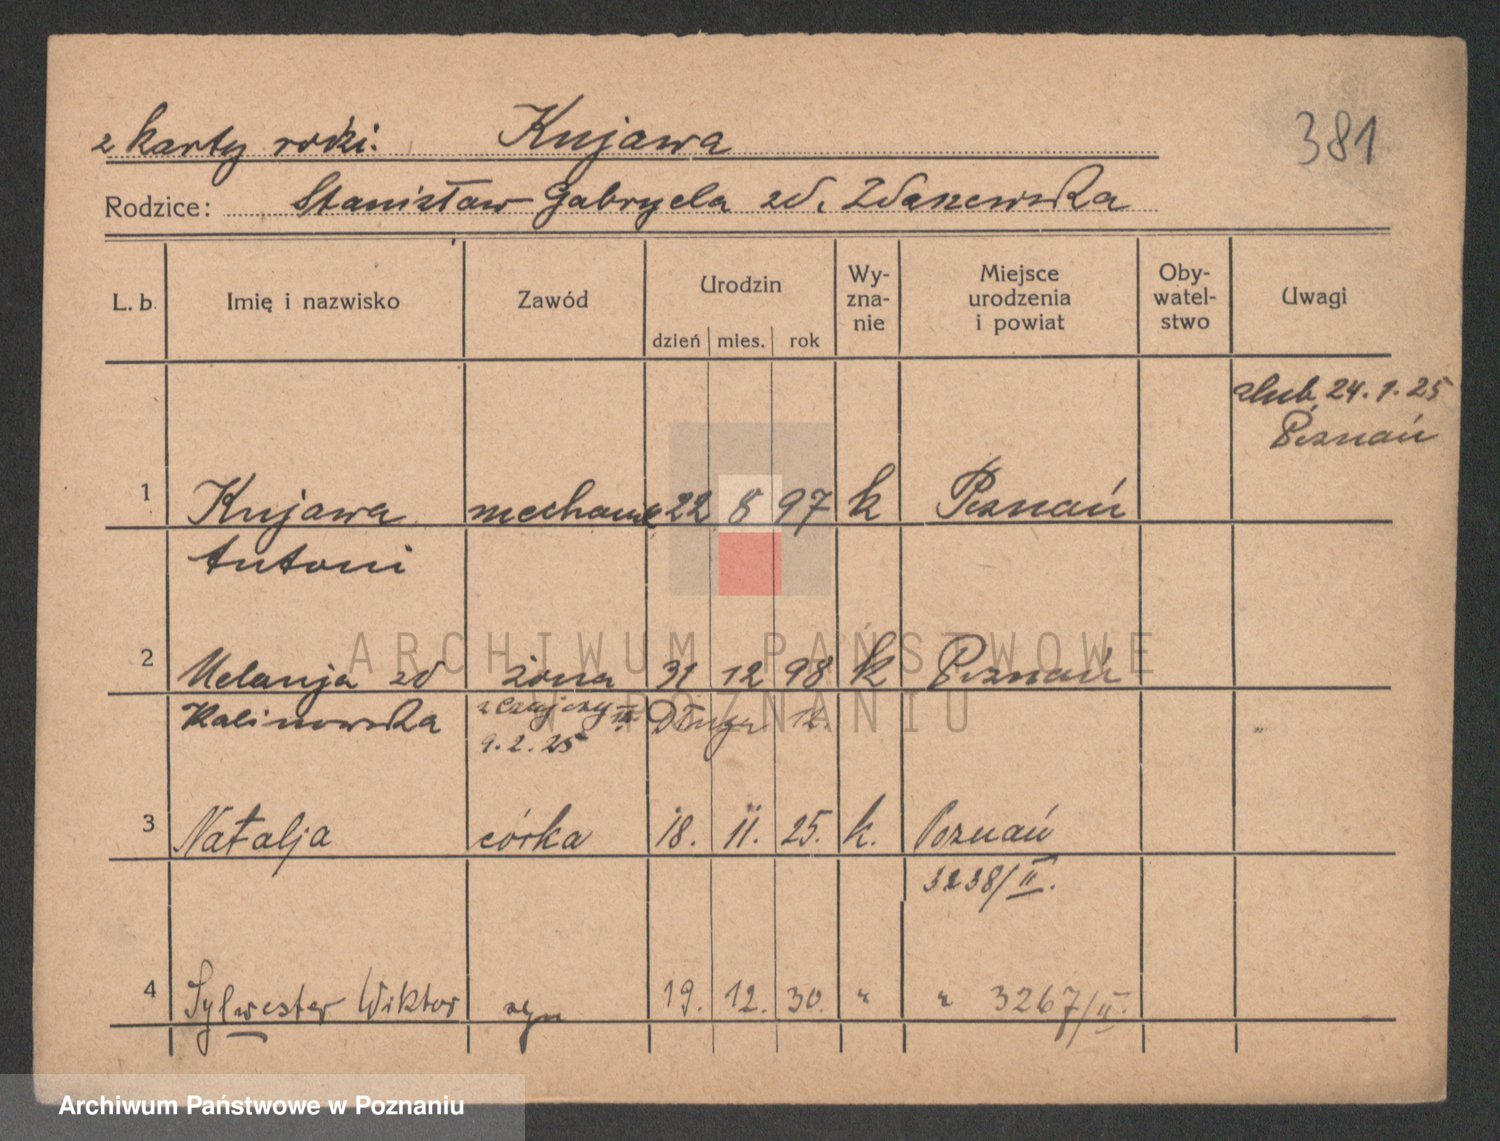 z karty rodzi: Kujawa 381
Rodzice: Stanisław Gabryela zd. Zdanowska
L. b. Imię i nazwisko Zawód Urodzin dzień mies. rok Wy-zna-nie Miejsce urodzenia i powiat Oby-watel-stwo Uwagi
ślub 24.1.25
Poznań
1 Kujawa mechanik 22 8 97 k Poznań
Antoni
2 Melanja zd żona 31 12 98 k Poznań
Kalinowska
9.2.25
3 Natalja córka 18. 11. 25. k. Poznań
3238/II.
4 Sylwester Wiktor syn 19. 12. 30. " " 3267/II.
ARCHIWUM PAŃSTWOWE
W POZNANIU
Archiwum Państwowe w Poznaniu